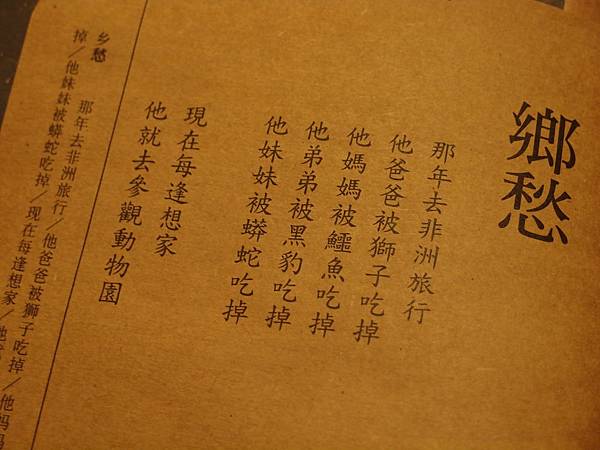 鄉愁
那年去非洲旅行
他爸爸被獅子吃掉
他媽媽被鱷魚吃掉
他弟弟被黑豹吃掉
他妹妹被蟒蛇吃掉
現在每逢想家
他就去參觀動物園
乡愁
那年去非洲旅行／他爸爸被狮子吃掉／他妈妈
掉／他妹妹被蟒蛇吃掉／现在每逢想家／他